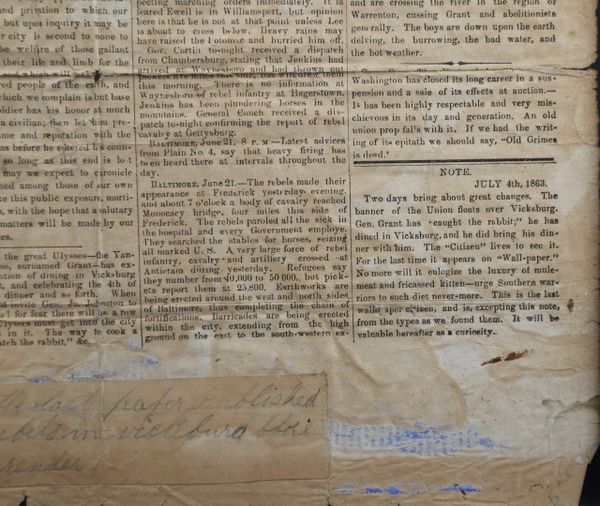 and privation to which our
but upon inquiry it may be
r city is second to none to
he welfare of those gallant
their life and limb for the
red people of the earth, and
which we complain is but base
oldier has his honor at much
a civilian; then let him pre-
ame and reputation with the
as before he entered his coun-
so long as this end is lo t
may we expect to chronicle
ned among those of our own
ke this public exposure, morti-
s, with the hope that a salutary
matters will be made by our
es.
the great Ulysses—the Yan-
mo, surnamed Grant—has ex-
ntion of dining in Vicksburg
t, and celebrating the 4th of
dinner and so forth. When
Ulysses must get into the city
in it. The way to cook a
atch the rabbit," &c.
pecting marching orders immediately. It is
feared Ewell is in Williamsport, but opinion
here is that he is not at that point unless Lee
is about to cross below. Heavy rains may
have raised the Potomac and hurried him off.
Gov. Curtin to-night received a dispatch
from Chambersburg, stating that Jenkins had
arrived at Waynesboro and had thrown out
this morning. There is no information at
Waynesboro of rebel infantry at Hagerstown.
Jenkins has been plundering horses in the
mountains. General Couch received a dis-
patch to-night confirming the report of rebel
cavalry at Gettysburg.
BALTIMORE, June 21, 8 P. M—Latest advices
from Plain No. 4, say that heavy firing has
been heard there at intervals throughout the
day.
BALTIMORE, June 21.—The rebels made their
appearance at Frederick yesterday evening,
and about 7 o'clock a body of cavalry reached
Monocacy bridge, four miles this side of
Frederick. The rebels paroled all the sick in
the hospital and every Government employe.
They searched the stables for horses, seizing
all marked U. S. A very large force of rebel
infantry, cavalry and artillery crossed at
Antietam during yesterday. Refugees say
they number from 40,000 to 50 000, but pick-
ets report them at 25,800. Earthworks are
being erected around the west and north sides
of Baltimore, thus completing the chain of
fortifications. Barricades are being erected
within the city, extending from the high
ground on the east to the south-western ex-
and are crossing the river in the region of
Warrenton, cussing Grant and abolitionists
generally. The boys are down upon the earth
delving, the burrowing, the bad water, and
the hot weather.
Washington has closed its long career in a sus-
pension and a sale of its effects at auction.—
It has been highly respectable and very mis-
chievous in its day and generation. An old
union prop falls with it. If we had the writ-
ing of its epitath we should say, "Old Grimes
is dead.'
NOTE.
JULY 4th, 1863.
Two days bring about great changes. The
banner of the Union floats over Vicksburg.
Gen. Grant has "caught the rabbit;" he has
dined in Vicksburg, and he did bring his din-
ner with him. The "Citizen" lives to see it.
For the last time it appears on "Wall-paper."
No more will it eulogize the luxury of mule-
meat and fricassed kitten—urge Southern war-
riors to such diet never-more. This is the last
wall-paper citizen, and is, excepting this note,
from the types as we found them. It will be
valuable hereafter as a curiosity.
the last paper published
in vicksburg before